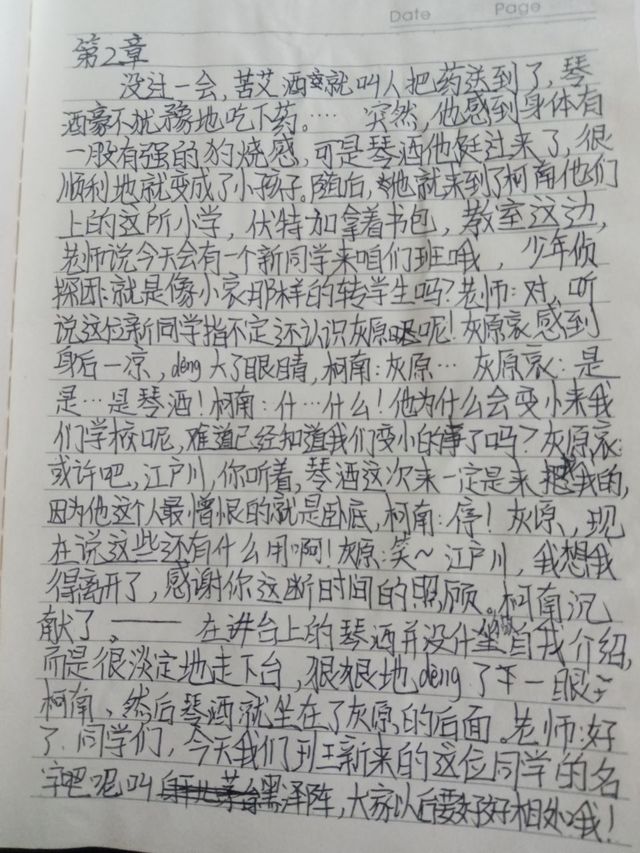 Date Page
第2章
没过一会,苦艾酒就叫人把药送到了,琴
酒豪不犹豫地吃下药。…… 突然,他感到身体有
一股有强的灼烧感,可是琴酒他挺过来了,很
顺利地就变成了小孩子。随后,他就来到了柯南他们
上的这所小学,伏特加拿着书包,教室这边,
老师说今天会有一个新同学来咱们班哦,少年侦
探团:就是像小哀那样的转学生吗?老师:对,听
说这位新同学指不定还认识灰原呢!灰原哀感到
身后一凉,dèng大了眼睛,柯南:灰原… 灰原哀:是
是…是琴酒!柯南:什…什么!他为什么会变小来我
们学校呢,难道已经知道我们变小的事了吗?灰原哀:
或许吧,江户川,你听着,琴酒这次来一定是来我的,
因为他这个人最憎恨的就是卧底,柯南:停!灰原,现
在说这些还有什么用啊!灰原:笑~江户川,我想我
得离开了,感谢你这断时间的照顾。柯南沉
献了。—— 在讲台上的琴酒并没什做自我介绍,
而是很淡定地走下台,狠狠地dèng了一眼
柯南、然后琴酒就坐在了灰原的后面。老师:好
了,同学们,今天我们班新来的这位同学的名
字呢叫黑泽阵,大家以后要好好相处哦!